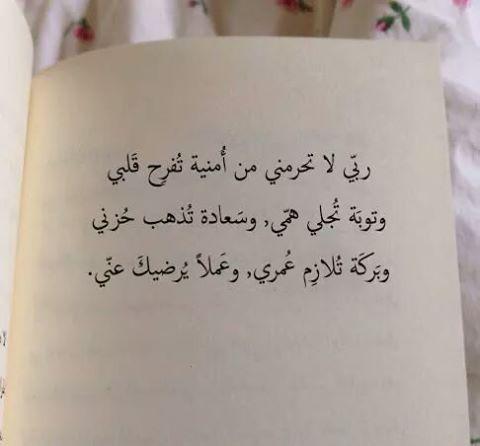 ربّي لا تحرمني من أُمنية تُفرِح قَلبي
وتوبَة تُجلي همّي, وسَعادة تُذهب حُزني
وبَركَة تُلازِم عُمري, وعَملاً يُرضيكَ عنّي.